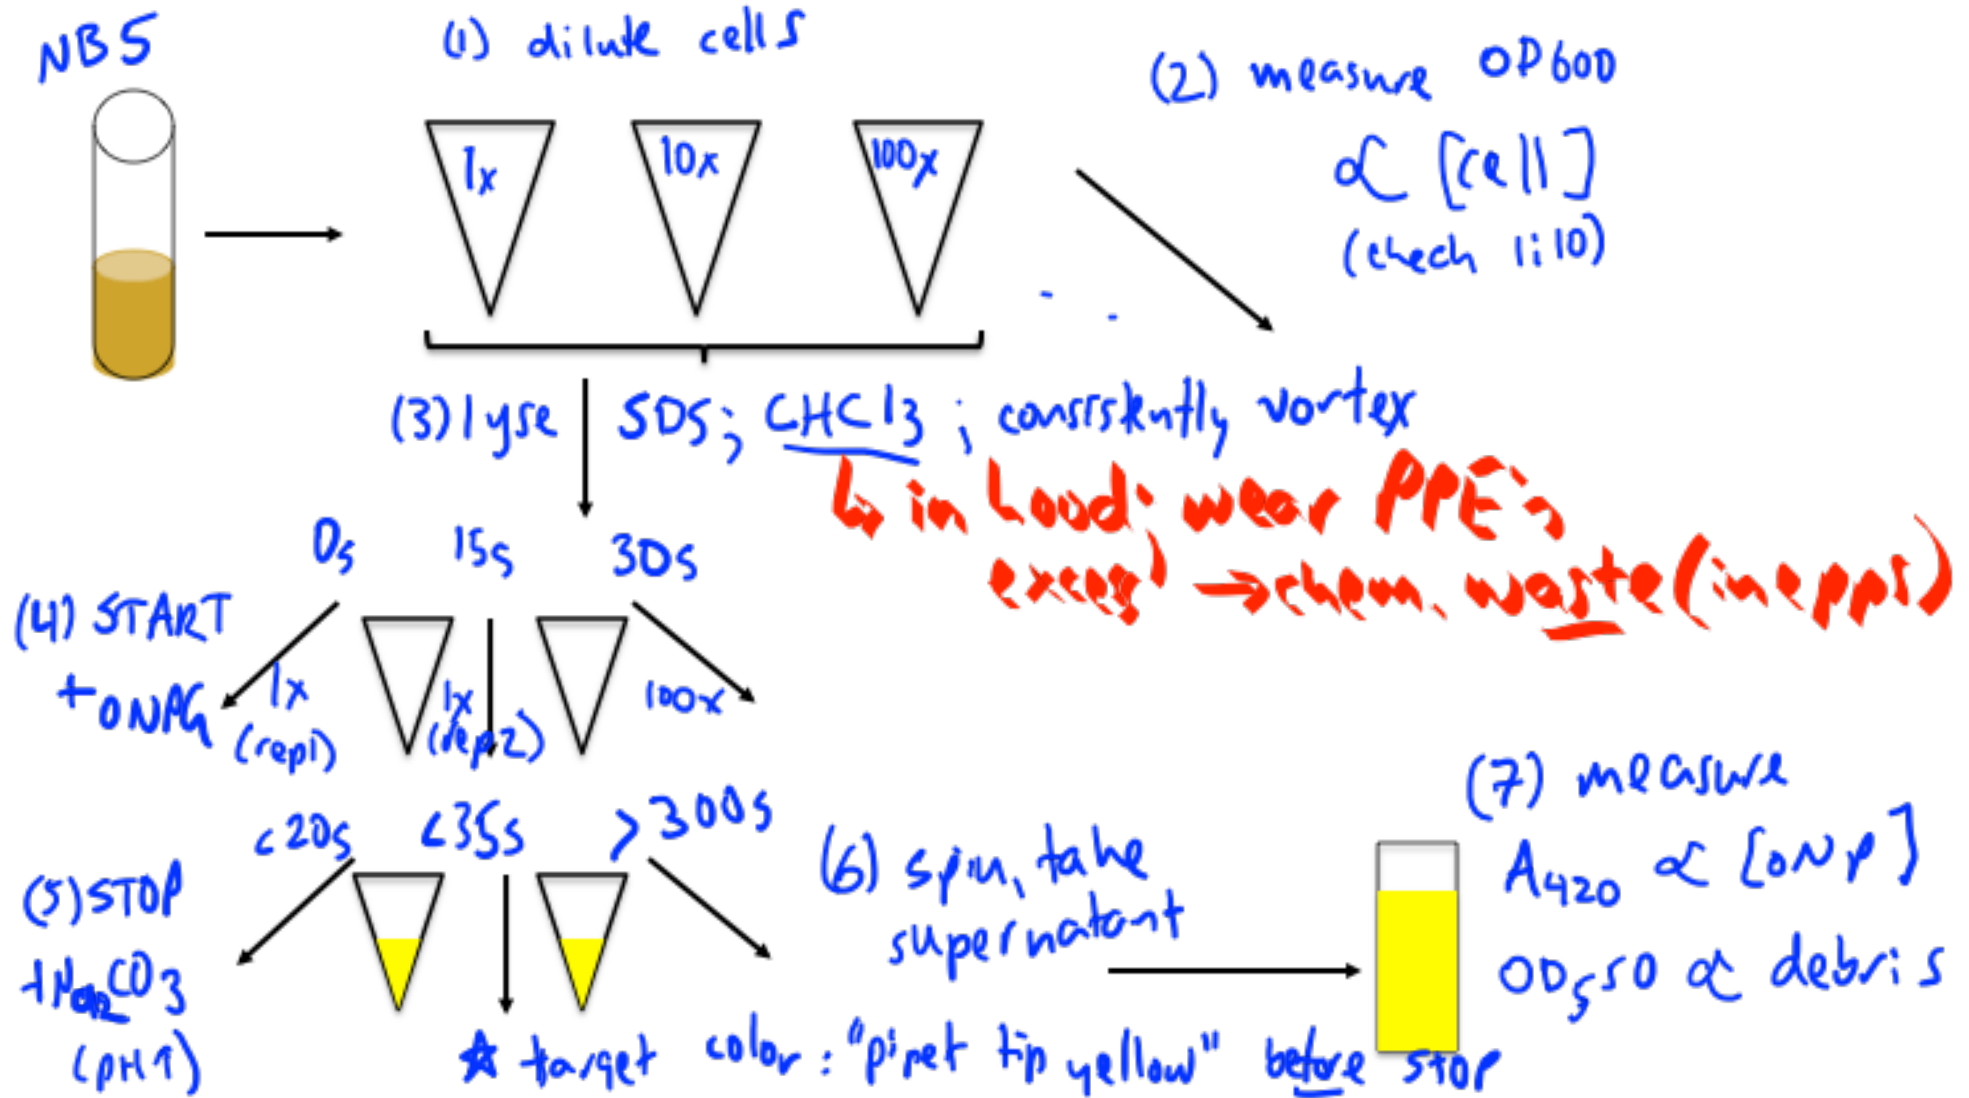 NB5
(1) dilute cells
1x
10x
100x
(2) measure OD600
∝ [cell]
(check 1:10)
(3) lyse
SDS; CHCl3 ; consistently vortex
↳ in hood; wear PPE;
excess → chem. waste (in epps)
0s 15s 30s
(4) START
+ ONPG
1x
(rep1)
1x
(rep2)
100x
<20s <35s >300s
(5) STOP
+Na2CO3
(pH↑)
(6) spin, take
supernatant
(7) measure
A420 ∝ [ONP]
OD550 ∝ debris
☆ target color: "pipet tip yellow" before STOP